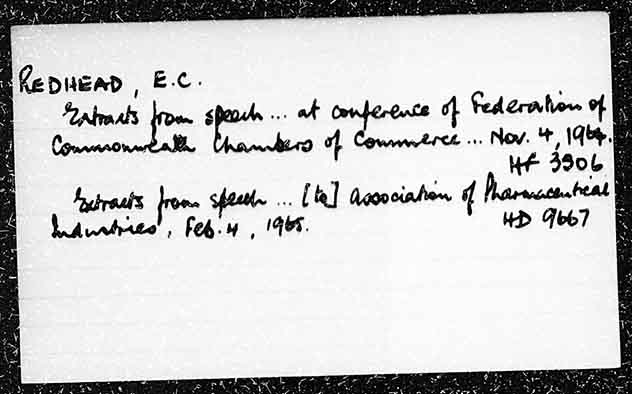 REDHEAD, E.C.
Extracts from speech ... at conference of Federation of
Commonwealth Chambers of Commerce ... Nov. 4, 1964.
HF 3506
Extracts from speech ... [to] Association of Pharmaceutical
Industries, Feb. 4, 1965.
HD 9667